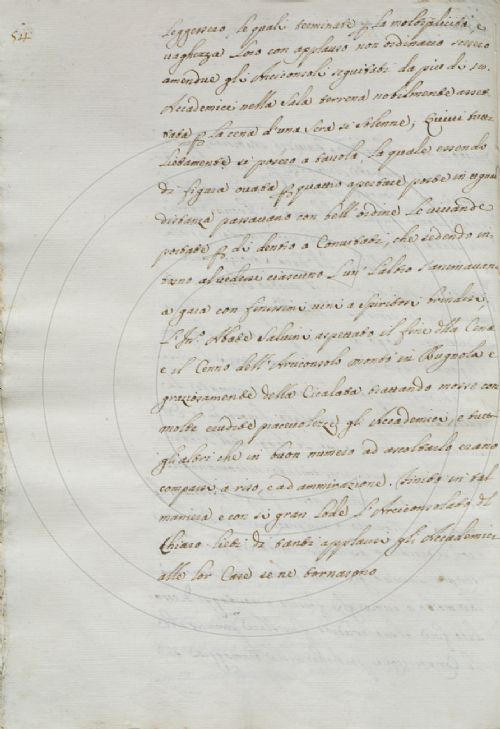 54
leggersero, le quali terminate p la moltiplicità, e
vaghezza loro con applauso non ordinario scesero
amendue gli Arciconsoli seguitati da più di 100.
Accademici nella Sala terrena nobilmente asset
tata p la cena d'una Sera sì solenne; Quivi tutti
lietamente si posero a tavola, la quale essendo
di figura ovata p quattro aperture poste in egual
distanza passavano con bell'ordine le vivande
portate p di dentro a Convitati, che sedendo in-
torno al vedersi ciascuno l'un l'altro s'animavano
a gara con finissimi vini a spiritosi brindisi
L'Ill. Abate Salvini aspettato il fine dlla Cena
e il Cenno dell'Arciconsolo montò in Bugnola e
graziosamente della Cicalata trattando mosse con
molte erudite piacevolezze gli Accademici, e tutti
gli altri che in buon numero ad ascoltarlo erano
comparsi, a riso, e ad ammirazione. Finito in tal
maniera e con sì gran lode l'Arciconsolato del
Chiaro lieti di tanti applausi gli Accademici
alle lor Case se ne tornarono